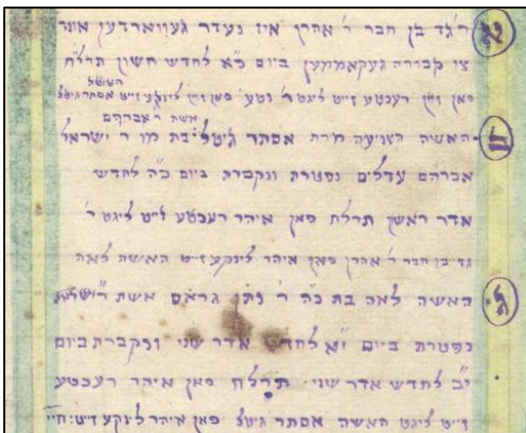 ר' גד בן חבר ר' אהרן איז נעדר געווארדען אונד
צו קבורה געקאממען ביום כ"א לחדש חשון תרל"ח
פאן זיין רעכטע זייט ליגט ר' נטע פאן זיין לינקע זייט אסתר גיטל
אשת ר' אברהם
האשה הצנועה מרת אסתר גיטל בת מו' ר' ישראל
אברהם עדלים נפטרת ונקברת ביום כ"ה לחדש
אדר ראשן תרלח פאן איהר רעכטע זייט ליגט ר'
גד בן חבר ר' אהרן פאן איהר לינקע זייט האשה לאה
האשה לאה בת כ"ה ר' נתן גראם אשת ר'
נפטרת ביום י"א לחדש אדר שני ונקברת ביום
י"ב לחדש אדר שני תרלח פאן איהר רעכטע
זייט ליגט האשה אסתר גיטל פאן איהר לינקע זייט